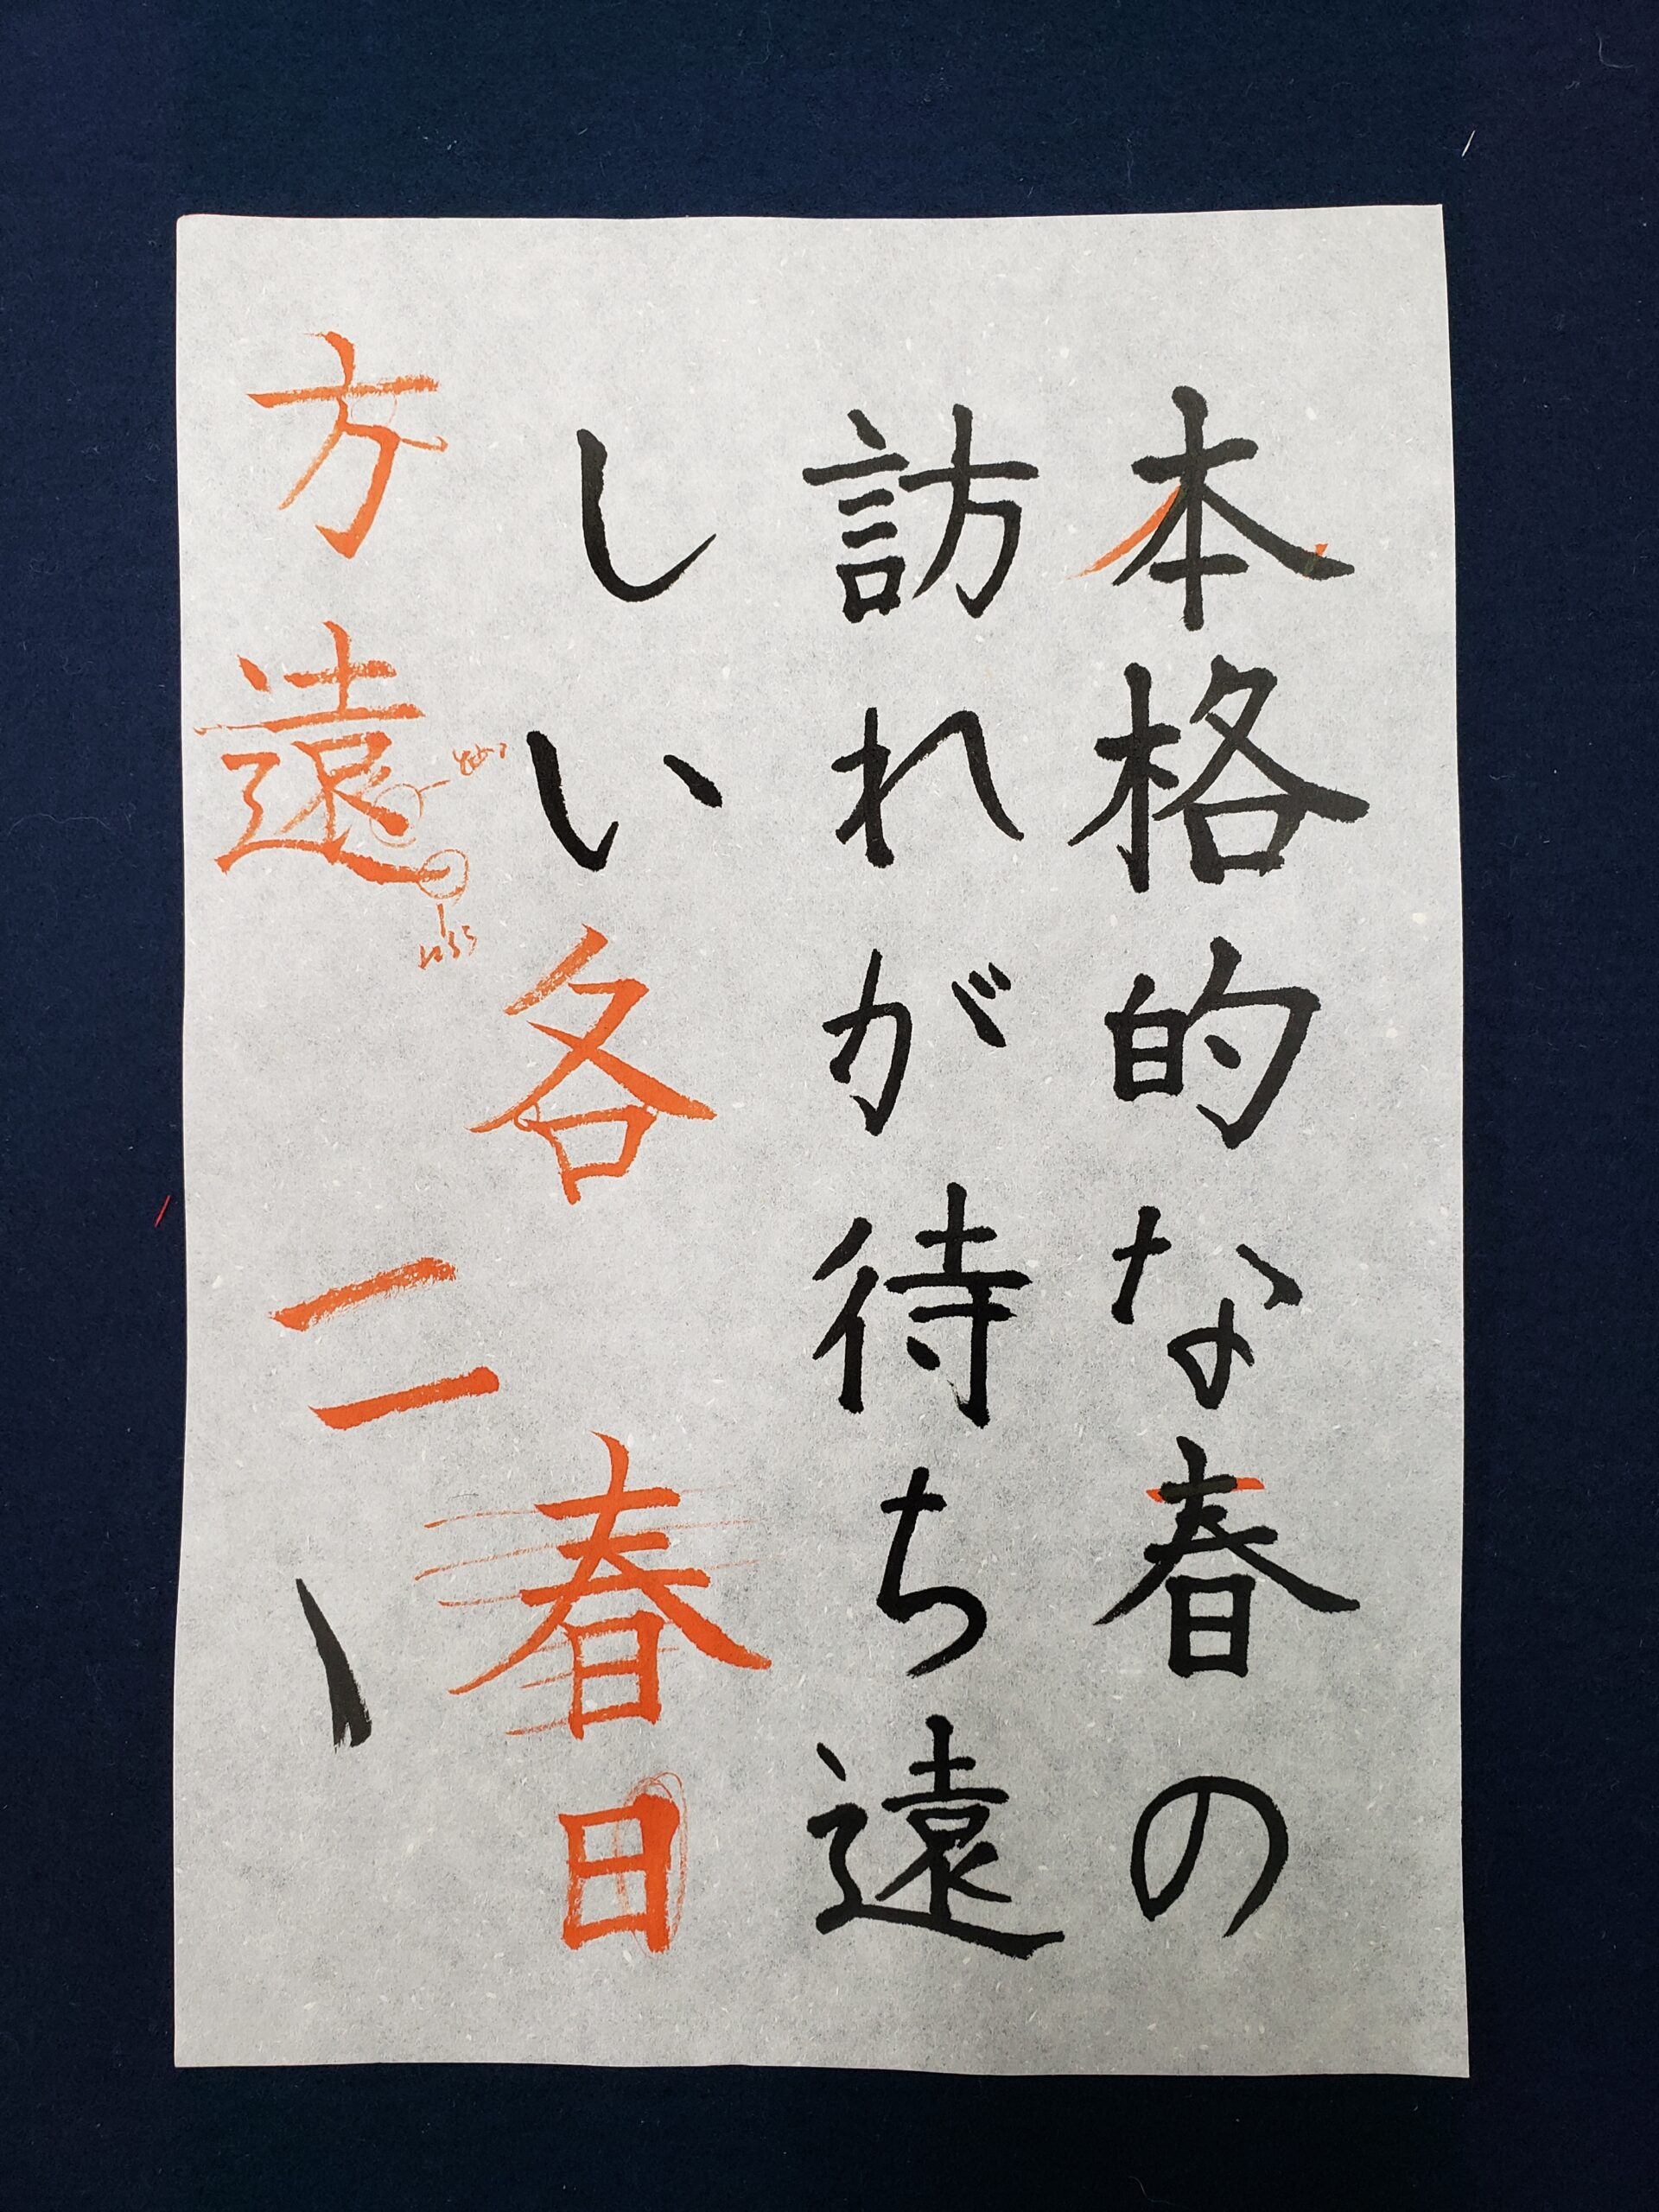 本格的な春の
訪れが待ち遠
しい
各
春
日
方
遠
二